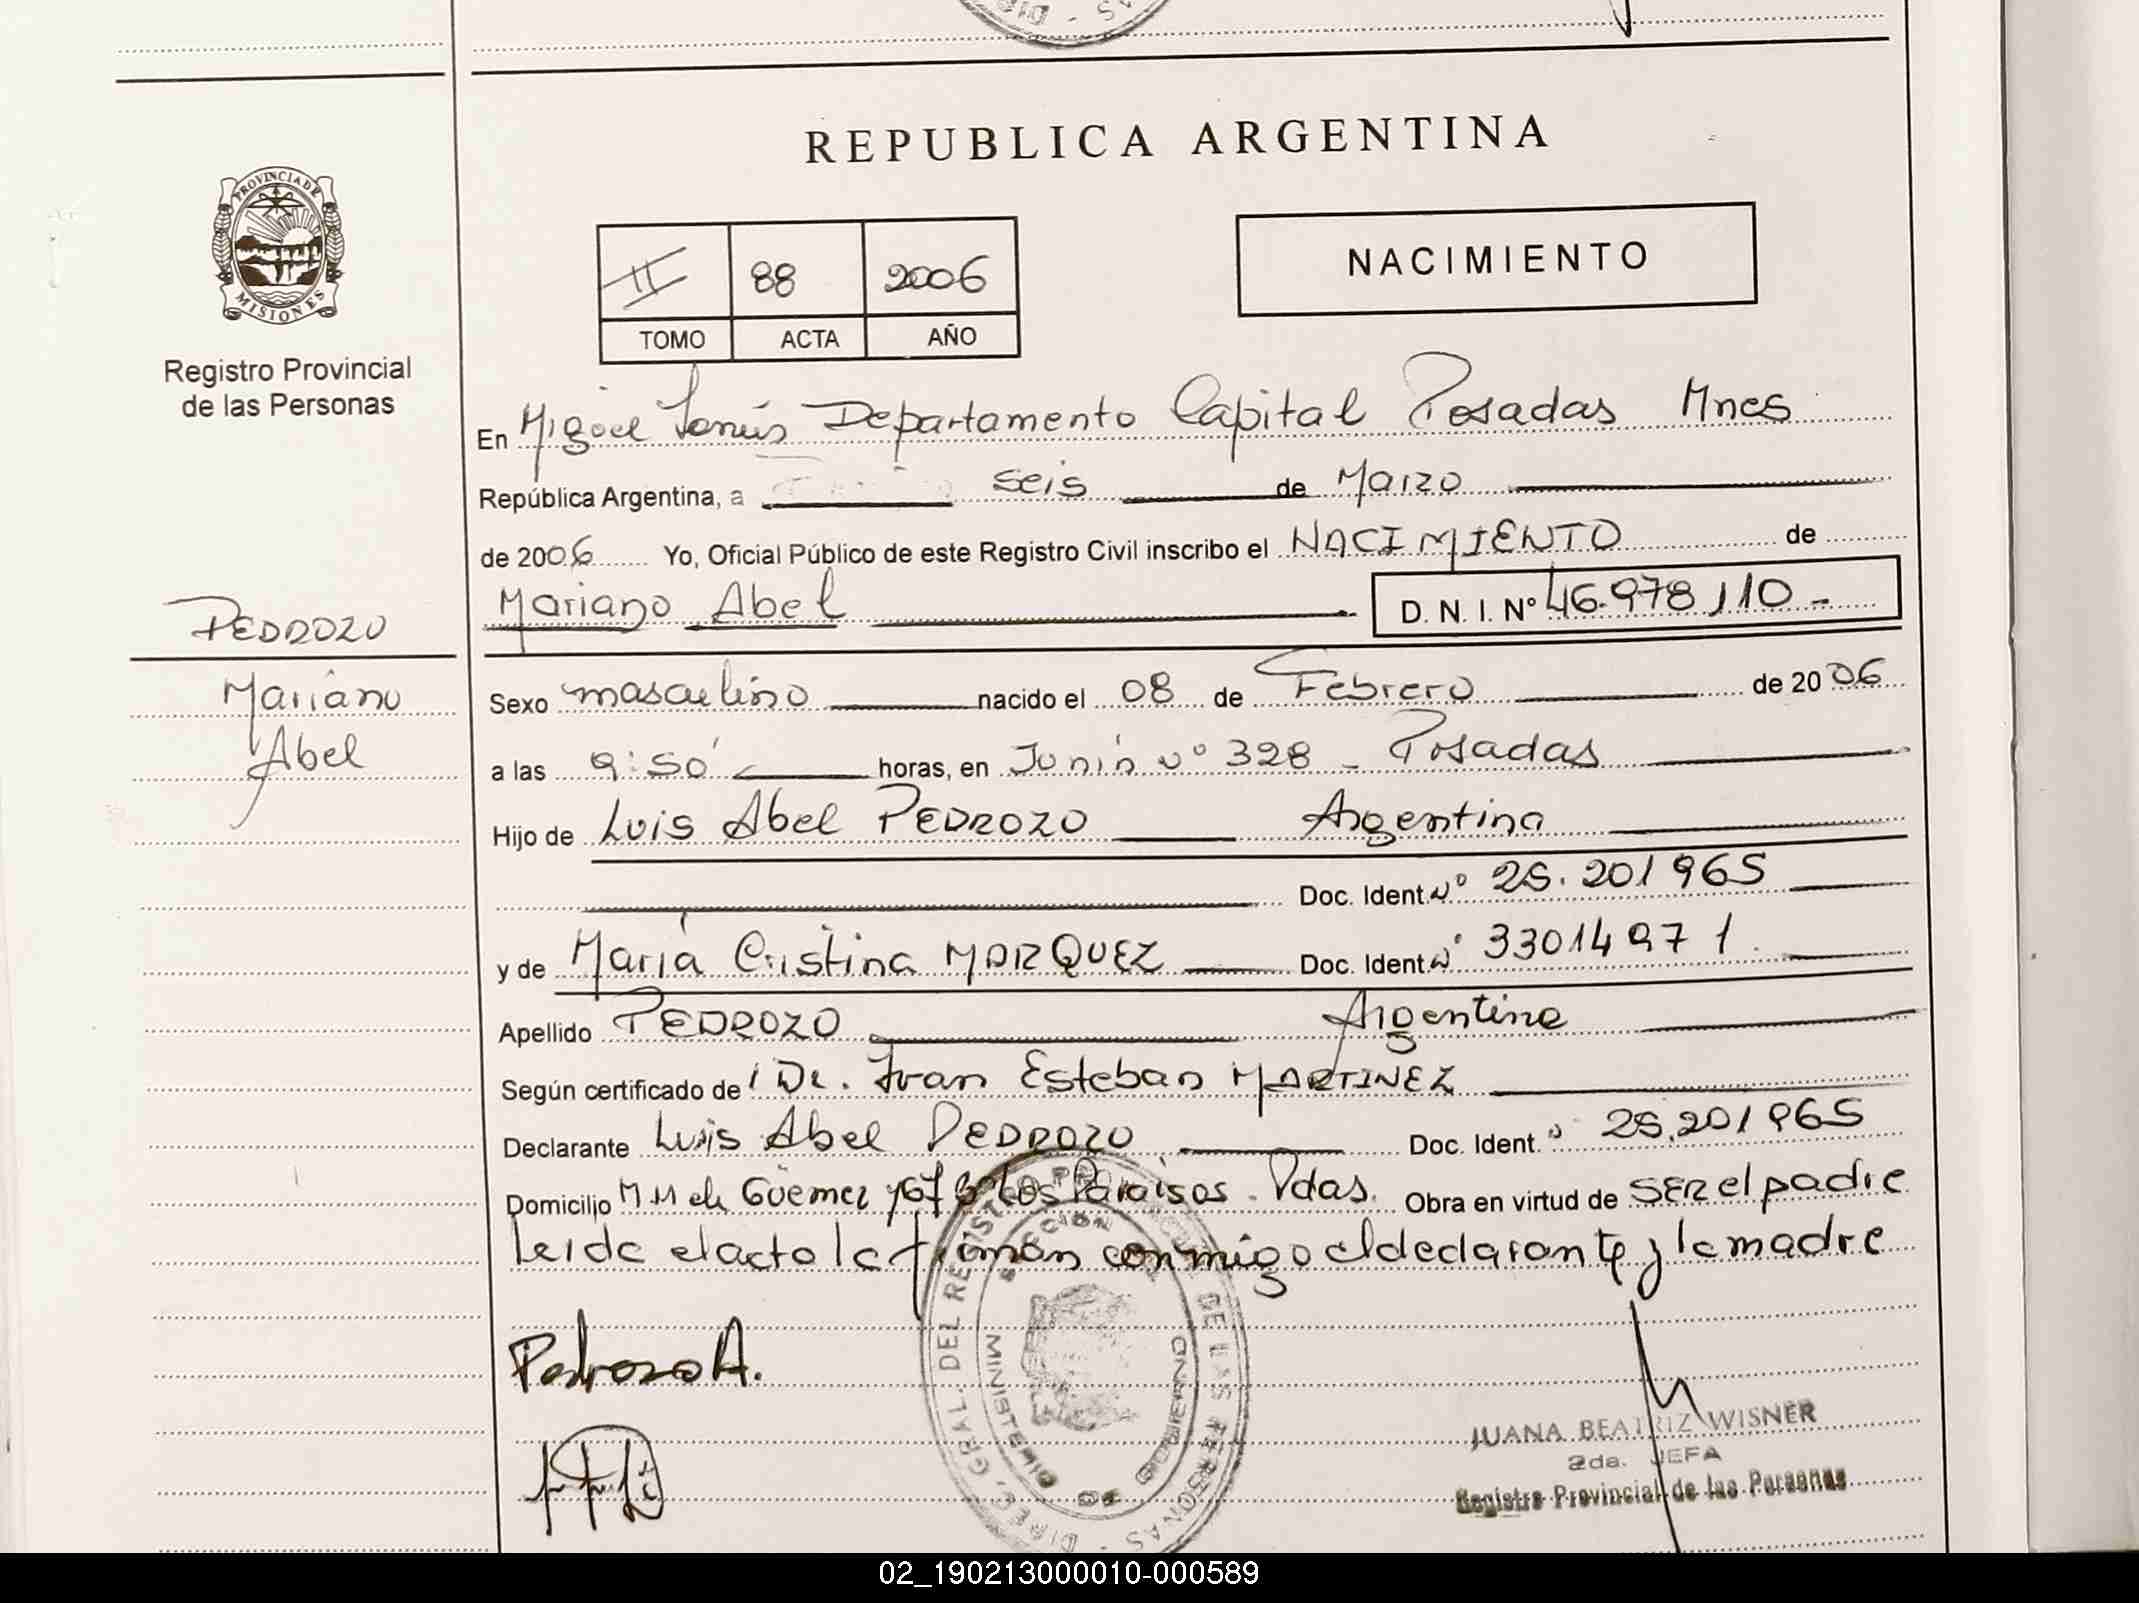 REPUBLICA ARGENTINA
PROVINCIA DE
MISIONES
Registro Provincial
de las Personas
II 88 2006
TOMO ACTA AÑO
NACIMIENTO
En Migoel Lanús Departamento Capital Posadas Mnes
República Argentina, a seis de Marzo
de 2006 Yo, Oficial Público de este Registro Civil inscribo el NACIMIENTO de
Mariano Abel D. N. I. Nº 46.978110 -
PEDROZO
Mariano
Abel
Sexo masculino nacido el 08 de Febrero de 2006
a las 9:50' horas, en Junín nº 328 - Posadas
Hijo de Luis Abel PEDROZO Argentina
Doc. Ident. Nº 25.201965
y de María Cristina MARQUEZ Doc. Ident. Nº 33014971
Apellido PEDROZO Argentina
Según certificado de Dr. Ivan Esteban MARTINEZ
Declarante Luis Abel PEDROZO Doc. Ident. º 25.201965
Domicilio M M de Güemes Los Paraisos. Pdas. Obra en virtud de SER el padre
Leida el acta la firman conmigo el declarante y la madre
Pedrozo A.
DIREC. GRAL. DEL REGISTRO DE LAS PERSONAS
MINISTERIO DE GOBIERNO
JUANA BEATRIZ WISNER
2da. JEFA
Registro Provincial de las Personas
02_190213000010-000589